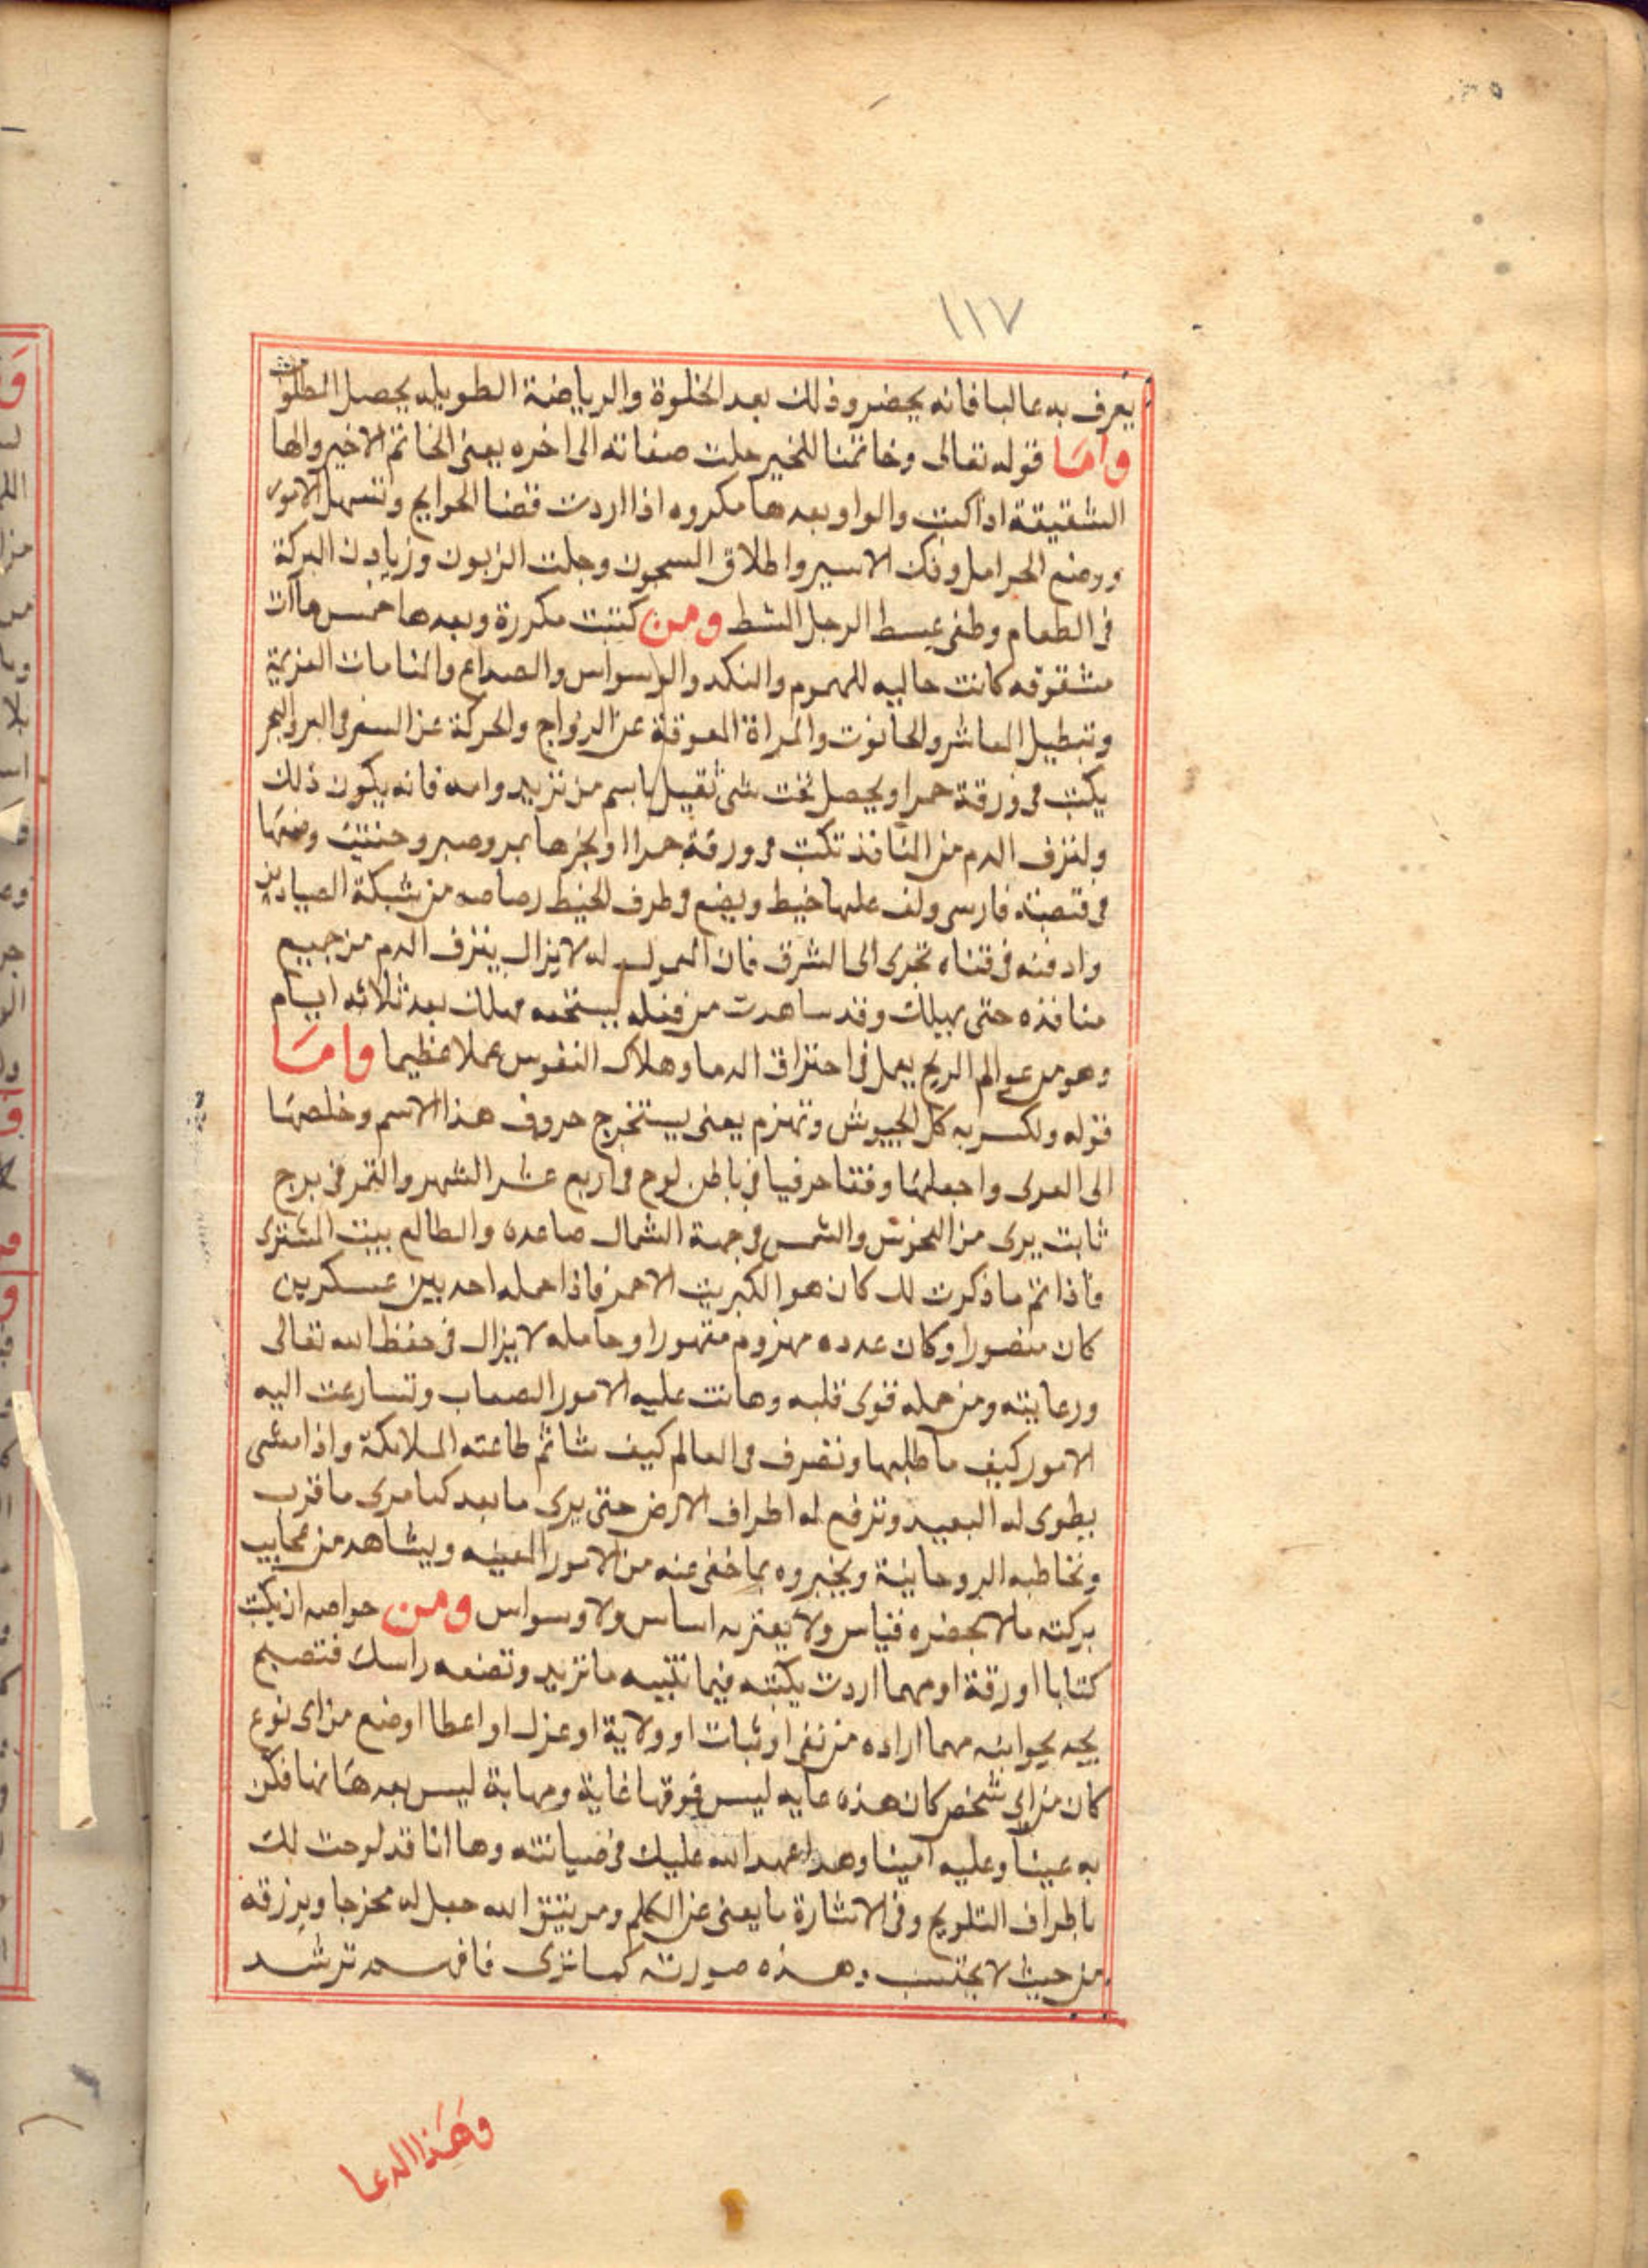 ١١٧
يعرف به عالبا فانه يحضر وذلك بعد الخلوة والرياضة الطويله يحصل المطلوب
واما قوله تعالى وخاتمنا للخير جلت صفاته الى اخره يعنى الخاتم الاخير والها
الشقيقة اذا كتبت والواو بعدها مكروه اذا اردت قضا الحوايج وتسهل الامور
ووضع الحوامل وفك الاسير واطلاق المسجون وجلت الزبون وزيادت البركة
فى الطعام وطفى عيسط الرجل الشط ومن كتبت مكررة وبعدها خمس هاآت
مشقوقه كانت جاليه للهموم والنكد والوسواس والصداع والمنامات المزيجة
وتبطيل المعاشر والحانوت والمراة المعوقة عن الزواج والحركة عن السفر فى البر والبحر
يكتب فى ورقة حمرا ويحصل تحت شى ثقيل باسم من تريد وامه فانه يكون ذلك
ولنزف الدم من المنافذ تكتب فى ورقة حمرا او بخرها بمر وصبر وحنتيت وضعها
فى قصبة فارسى ولف عليها خيط ويضع فى طرف الخيط رصاصه من شبكة الصيادين
وادفنه فى قناه تجرى الى الشرق فان المعمول له لا يزال ينزف الدم من جميع
منافذه حتى يهلك وقد ساهدت من فعله لمستحقه فهلك بعد ثلاثه ايام
وهو من عوالم الريح يعمل فى احتراق الدما وهلاك النفوس عملا عظيما واما
قوله ولكسر به كل الجيوش وتهزم يعنى يستخرج حروف هذا الاسم وخلصها
الى العدى واجعلها وفقا حرفيا فى باطن لوح فى اربع عشر الشهر والقمر فى برج
ثابت برى من النحوس والشمس فى جهة الشمال صاعده والطالع بيت المشترى
فاذا تم ما ذكرت لك كان هو الكبريت الاحمر فاذا حمله احد بين عسكرين
كان منصورا وكان عدده مهزوم مقهورا وحامله لا يزال فى حفظ الله تعالى
ورعايته ومن حمله قوى قلبه وهانت عليه الامور الصعاب وتسارعت اليه
الامور كيف ما طلبها وتصرف فى العالم كيف شا ثم طاعته الملائكة واذا مشى
يطوى له البعيد وترفع له اطراف الارض حتى يرى ما بعد كما يرى ما قرب
وتخاطبه الروحانية ويخبروه بما خفى عنه من الامور المغيبه ويشاهد من عجايب
بركته ما لا يحضره قياس ولا يعتريه اساس ولا وسواس ومن خواصه ان يكتب
كتابا او رقة او مهما اردت يكتبه فيما تكتبه ما تريد وتضعه راسك فتصبح
يجد بجوابه مهما اراده من نفى او ثبات او ولاية او عزل او اعطا او ضع من اى نوع
كان من اى شخص كان هذه غايه ليس فوقها غاية ومهابة ليس بعدها نها فكن
به عينا وعليه امينا وهذا عهد الله عليك فى صيانته وها انا قد لوحت لك
باطراف التلويح وفى الاشارة ما يغنى عن الكلم ومن يتق الله جعل له مخرجا ويرزقه
من حيث لا يحتسب وهذه صورته كما ترى فافهم ترشد
وهذا الدعا